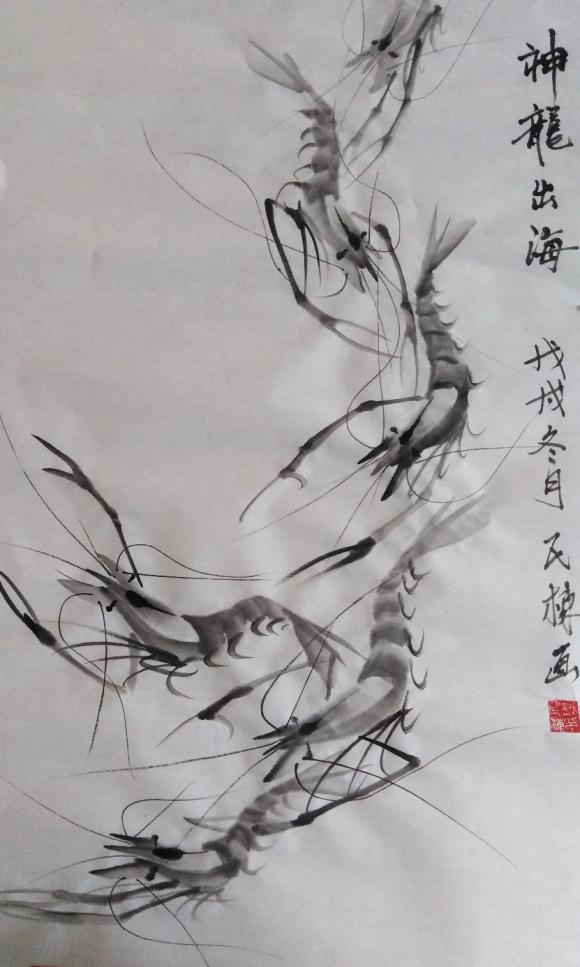 神龍出海
戊戌冬月 民棟画